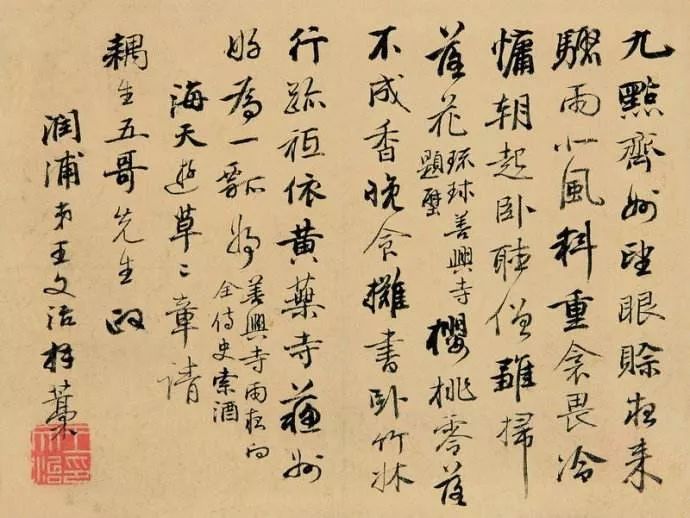 九點齊州望眼賒夜來
驟雨小風斜重衾畏冷
慵朝起卧聽僧雛掃
落花
琉球善興寺
題壁
櫻桃零落
不成香晚食攤書卧竹牀
行跡祗依黃蘗寺州
好為一瓢嘗
善興寺雨夜向
全侍史索酒
海天遊草二章請
耦生五哥先生政
潤浦弟王文治拜藁